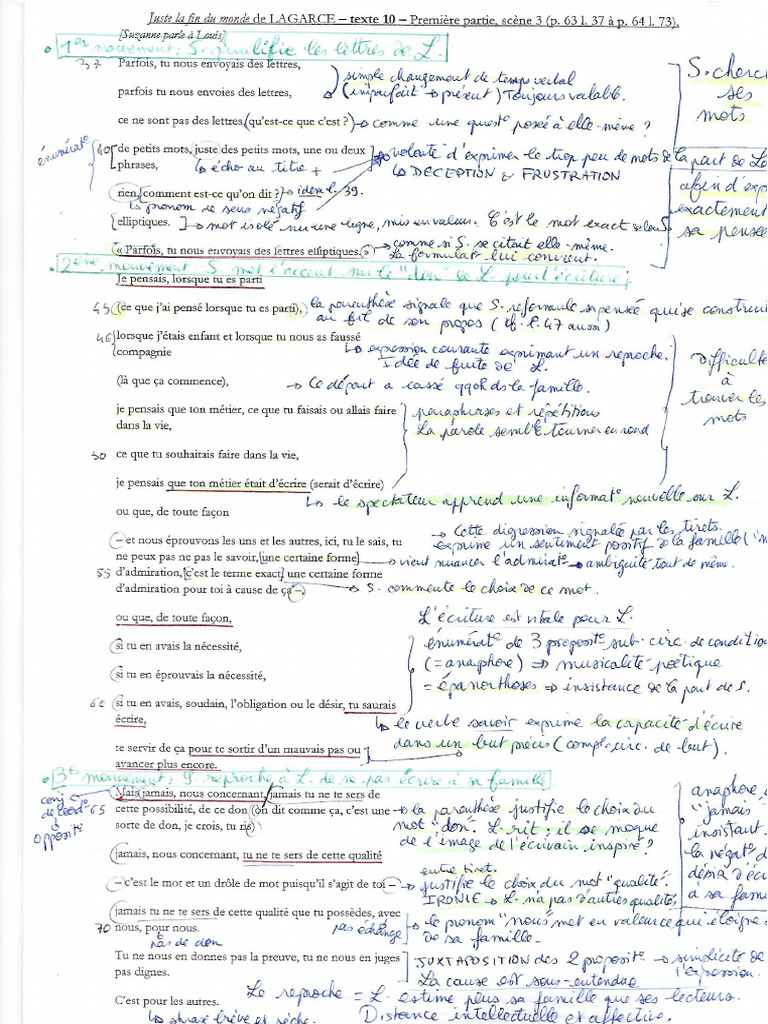 Juste la fin du monde de LAGARCE – texte 10 – Première partie, scène 3 (p. 63 l. 37 à p. 64 l. 73).
[Suzanne parle à Louis]
1er mouvement : S. qualifie les lettres de L.
37 Parfois, tu nous envoyais des lettres,
parfois tu nous envoies des lettres,
simple changement de temps verbal
(imparfait → présent) Toujours valable.
S. cherch
ses
mots
ce ne sont pas des lettres, (qu'est-ce que c'est ?) → comme une questo posée à elle-même ?
énumérato
40 de petits mots, juste des petits mots, une ou deux
phrases,
↳ écho au titre +
volonté d'exprimer le trop peu de mots de la part de L
↳ DECEPTION & FRUSTRATION
rien, [comment est-ce qu'on dit ?] → idem l. 39.
↳ pronom de sens négatif
afin d'exp
exactement
sa pensée
elliptiques. ] → mot isolé sur une ligne, mis en valeur. C'est le mot exact selon S.
« Parfois, tu nous envoyais des lettres elliptiques. » → comme si S. se citait elle-même.
La formulato lui convient.
2ème mouvement S. met l'accent sur le "don" de L. pour l'écriture.
Je pensais, lorsque tu es parti
45 (ce que j'ai pensé lorsque tu es parti), la parenthèse signale que S. reformule sa pensée qui se construit
au fil de son propos (cf. l. 47 aussi)
46 lorsque j'étais enfant et lorsque tu nous as faussé
compagnie
↳ expression courante exprimant un reproche.
Idée de fuite de L.
(là que ça commence), → Ce départ a cassé qqch ds la famille.
Difficulté
à
trouver les
mots
je pensais que ton métier, ce que tu faisais ou allais faire
dans la vie,
paraphrases et répétitions
La parole semble tourner en rond
50 ce que tu souhaitais faire dans la vie,
je pensais que ton métier était d'écrire (serait d'écrire)
↳ le spectateur apprend une informato nouvelle sur L.
ou que, de toute façon
– et nous éprouvons les uns et les autres, ici, tu le sais, tu
ne peux pas ne pas le savoir, [une certaine forme]
→ Cette digression signalée par les tirets.
exprime un sentiment positif de la famille
→ vient nuancer l'admirato → ambiguïté tout de même.
55 d'admiration, [c'est le terme exact] une certaine forme
d'admiration pour toi à cause de ça –,
→ S. commente le choix de ce mot.
ou que, de toute façon,
L'écriture est vitale pour L.
si tu en avais la nécessité,
si tu en éprouvais la nécessité,
énumérato de 3 proposito sub. circ. de condition
(= anaphore) ⇒ musicalité poétique
= épanorthoses ⇒ insistance de la part de S.
60 si tu en avais, soudain, l'obligation ou le désir, tu saurais
écrire,
↳ le verbe savoir exprime la capacité d'écrire
dans un but précis (compl. circ. de but).
te servir de ça pour te sortir d'un mauvais pas ou
avancer plus encore.
3e mouvement : S. reproche à L. de ne pas écrire à sa famille
Mais jamais, nous concernant, jamais tu ne te sers de
conj
de coordo
↓
opposito
65 cette possibilité, de ce don (on dit comme ça, c'est une
sorte de don, je crois, tu ris)
→ la parenthèse justifie le choix du
mot "don". L. rit : il se moque
de l'image de l'écrivain inspiré ?
anaphore d
"jamais"
insistant
la négato d
désir d'éc
à sa fam
jamais, nous concernant, tu ne te sers de cette qualité
– c'est le mot et un drôle de mot puisqu'il s'agit de toi –
entre tirets.
justifie le choix du mot "qualité".
IRONIE → L. n'a pas d'autres qualités
jamais tu ne te sers de cette qualité que tu possèdes, avec
70 nous, pour nous.
pas échange
pas de don
→ le pronom "nous" met en valeur ce qui éloigne L
de sa famille.
Tu ne nous en donnes pas la preuve, tu ne nous en juges
pas dignes.
JUXTAPOSITION des 2 proposito → simplicité de
l'expression.
La cause est sous-entendue
C'est pour les autres.
Le reproche = L. estime plus sa famille que ses lecteurs.
↳ phrase brève et sèche.
Distance intellectuelle et affective.